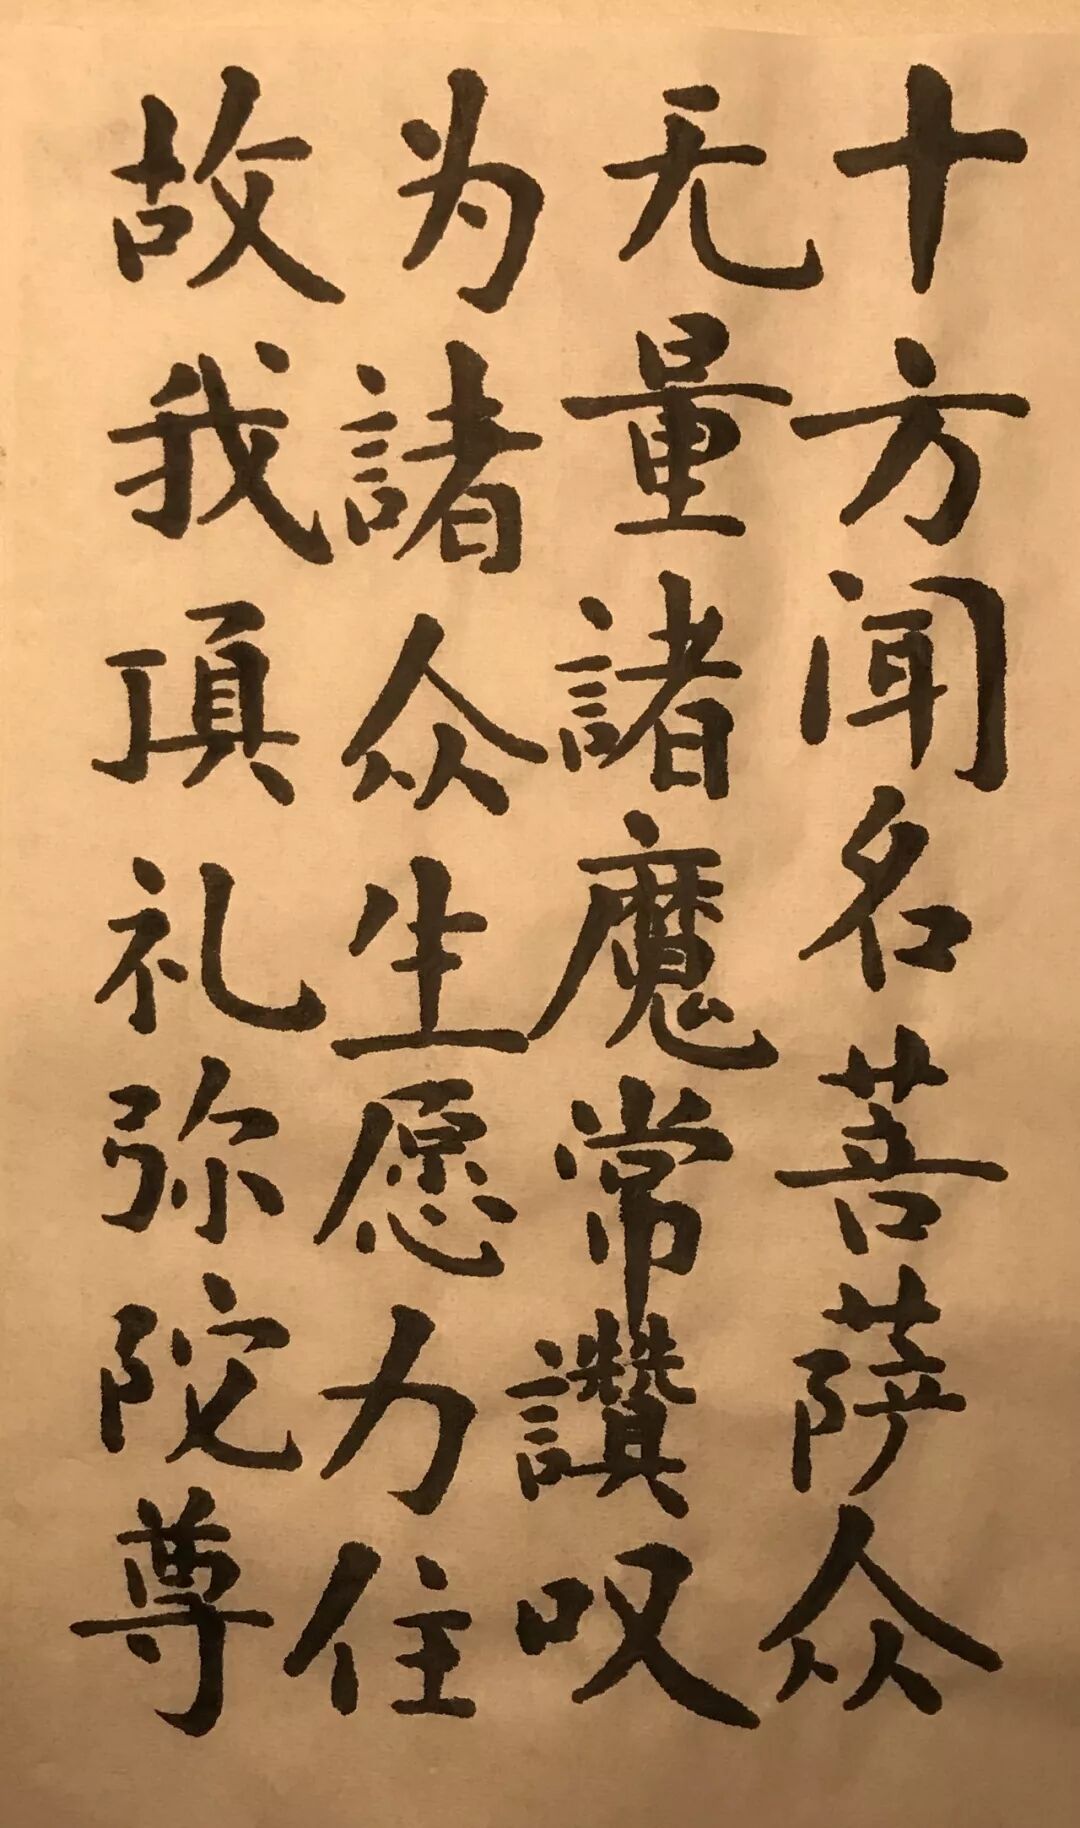 十方闻名菩萨众
无量諸魔常讚叹
为諸众生愿力住
故我頂礼弥陀尊